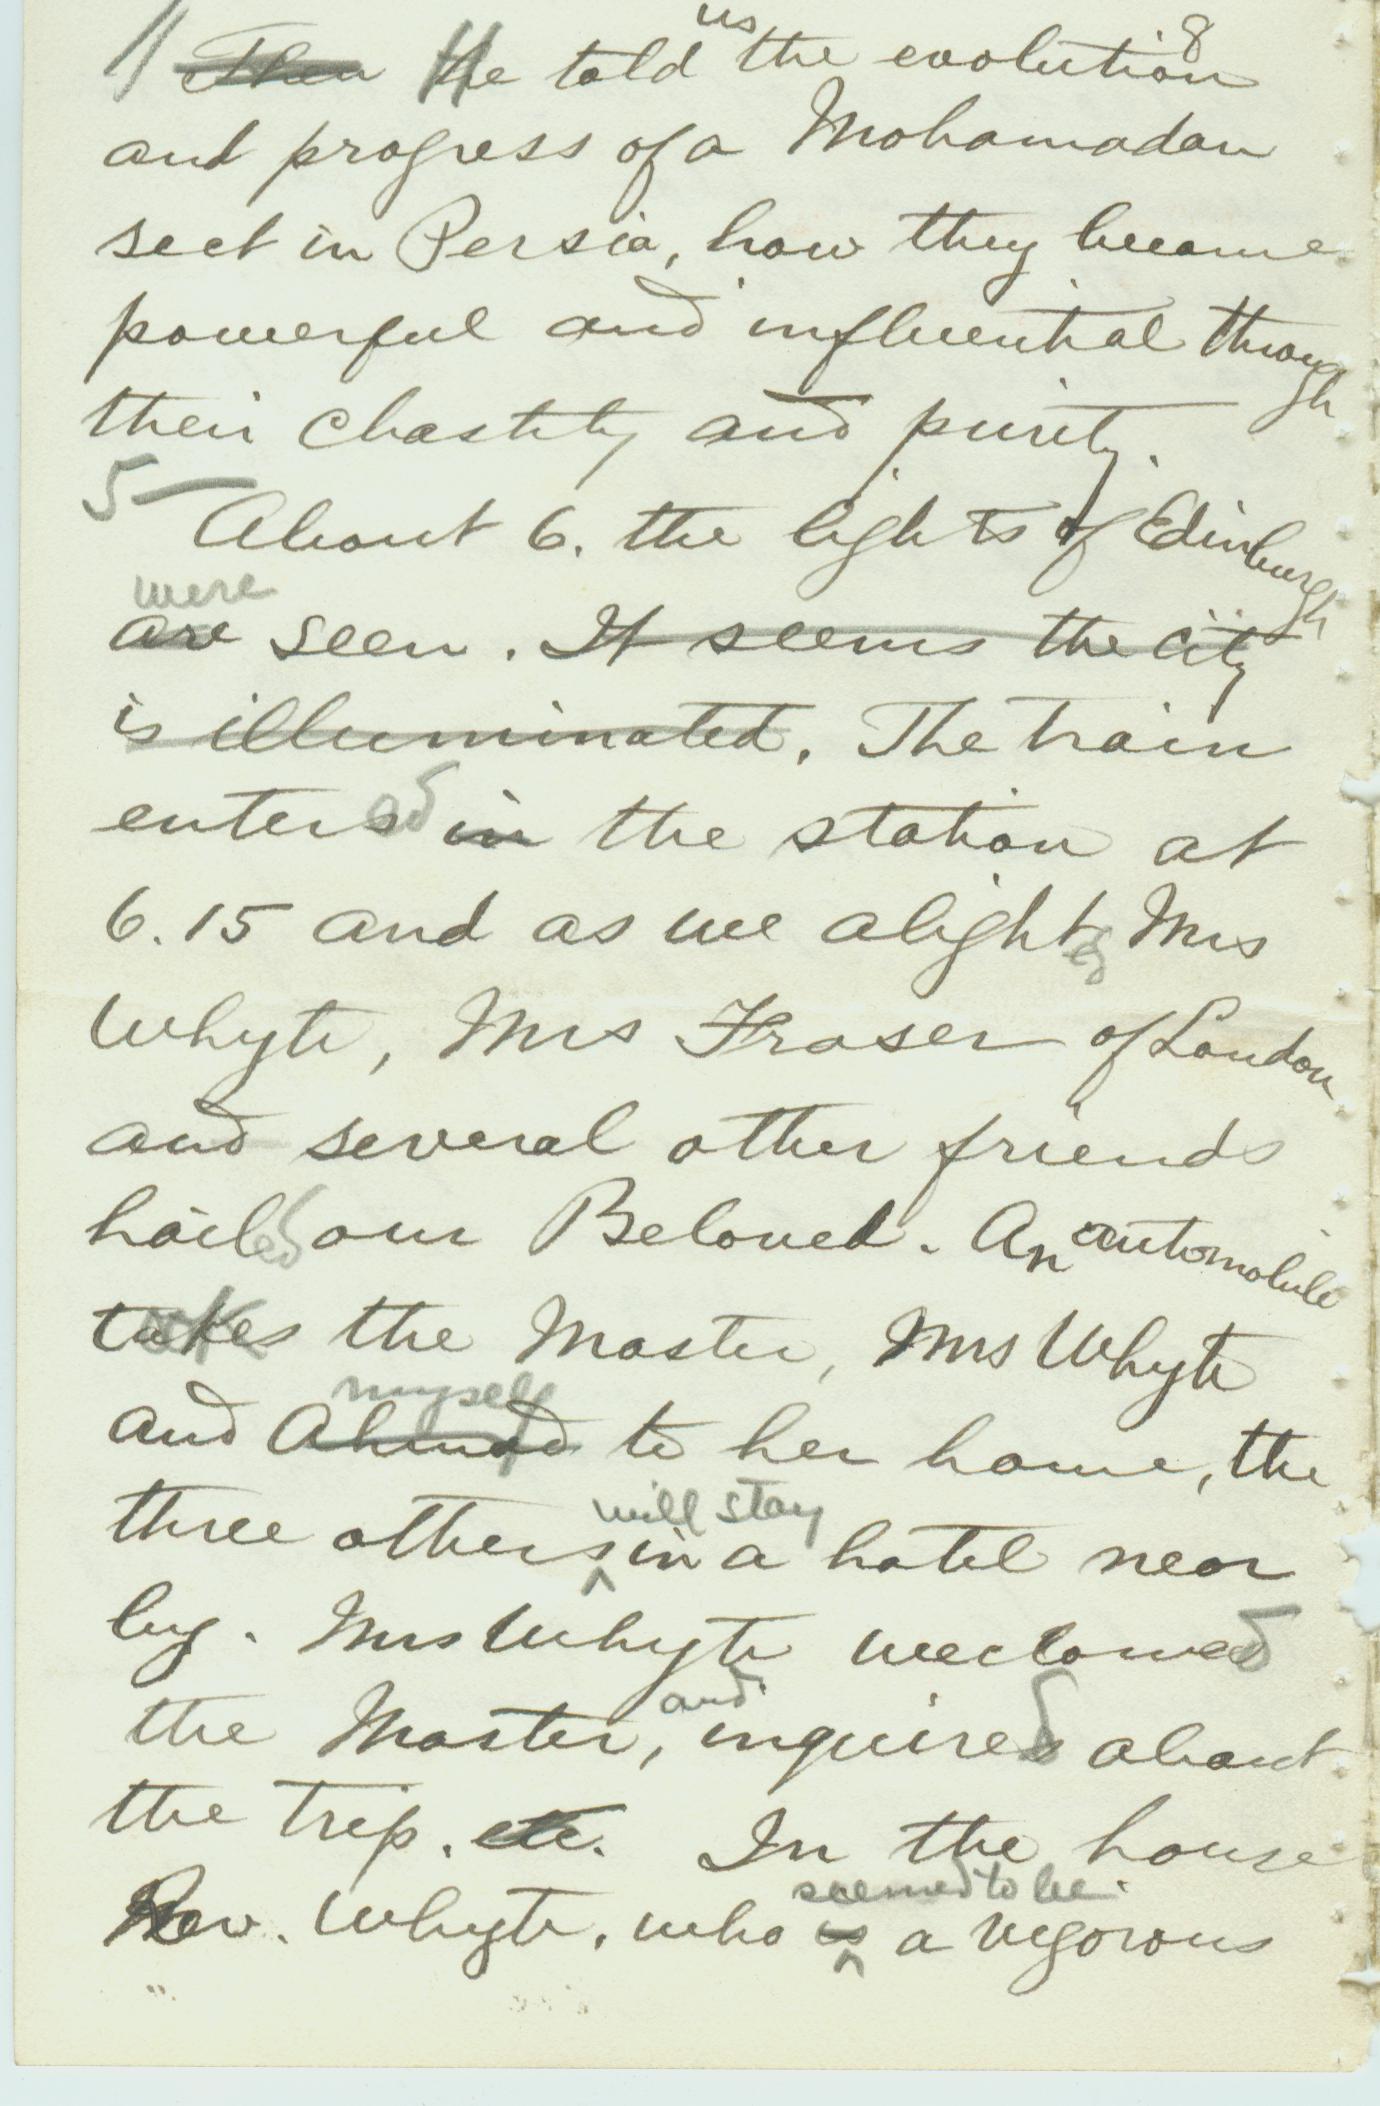 us 8
// ~~Then~~ He told the evolution
and progress of a Mohamadan
sect in Persia, how they became
powerful and influential through
their chastity and purity.
5— About 6. the lights of Edinburgh
were
~~are~~ seen. ~~It seems the city~~
~~is illuminated.~~ The train
entered ~~in~~ the station at
6.15 and as we alighted Mrs
Whyte, Mrs Fraser of London
and several other friends
hailed our Beloved. An automobile
takes the Master, Mrs Whyte
myself
and ~~Ahmad~~ to her home, the
will stay
three others ^ in a hotel near
by. Mrs Whyte weclomed
and
the Master, inquired about
the trip. ~~etc.~~ In the house
seemed to be
Rev. Whyte, who ~~is~~ ^ a vigorous